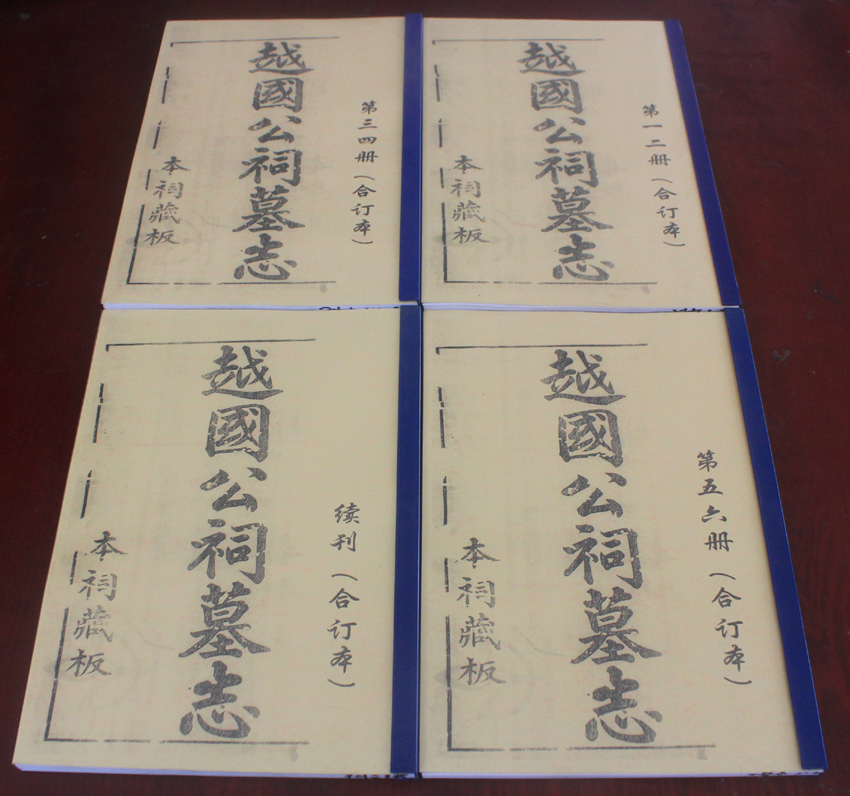 第一二册（合订本）
越國公祠墓志
本祠藏板
第三四册（合订本）
越國公祠墓志
本祠藏板
第五六册（合订本）
越國公祠墓志
本祠藏板
续刊（合订本）
越國公祠墓志
本祠藏板